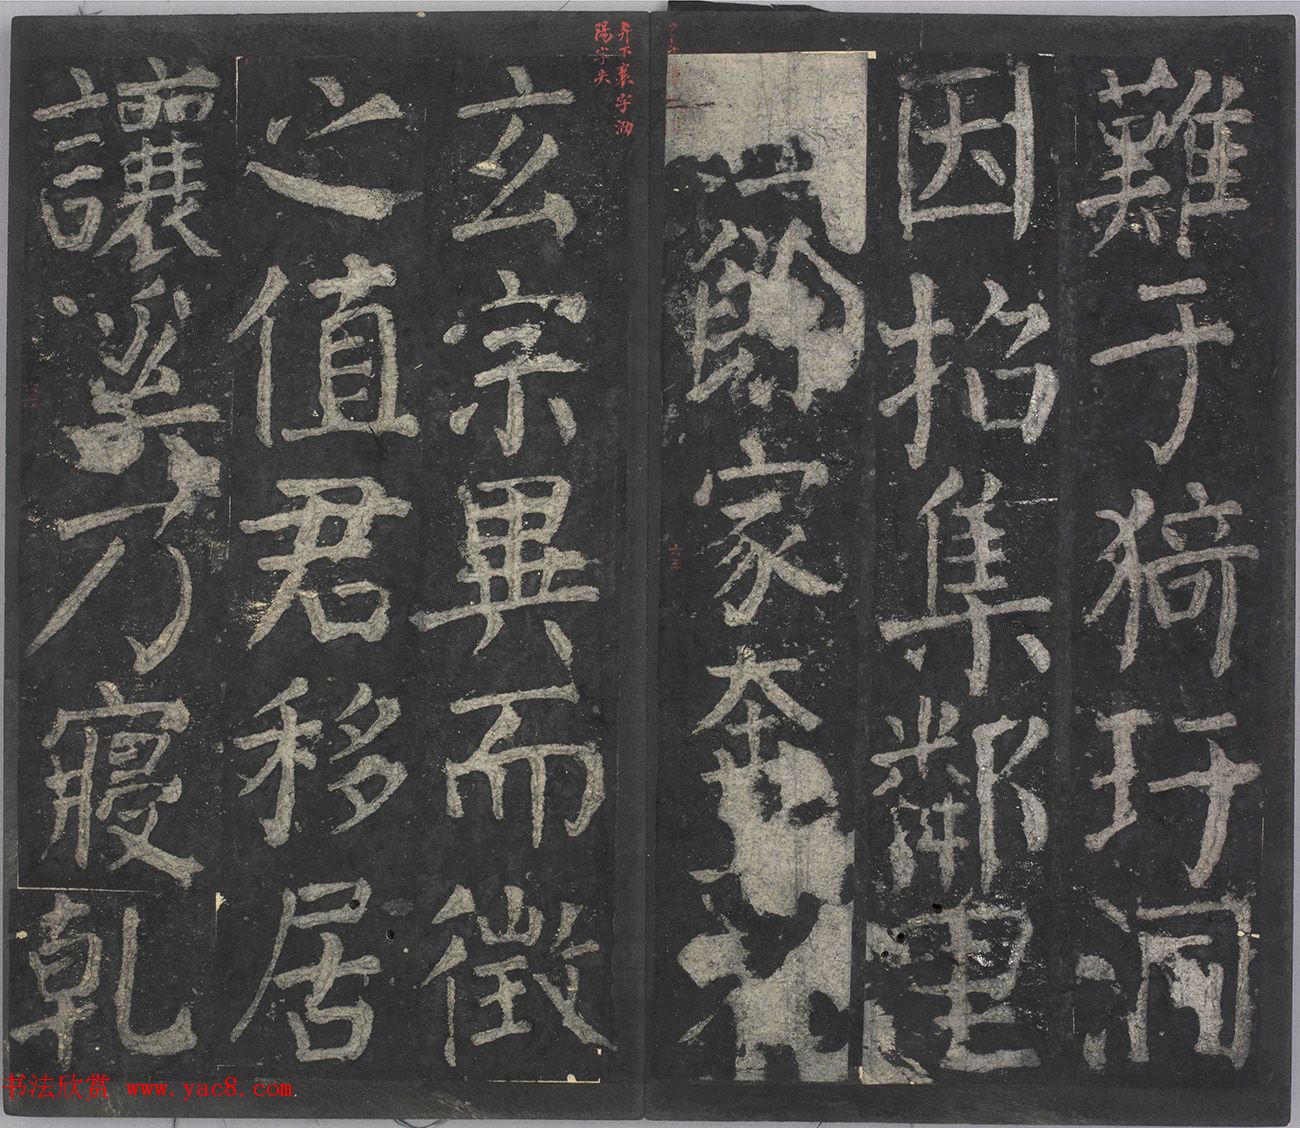 難于猗玗洞
因招集鄰里
餘家奔
奔下襄字泐
陽字失
玄宗異而徵
之值君移居
讓溪乃寢乾
书法欣赏 www.yac8.com